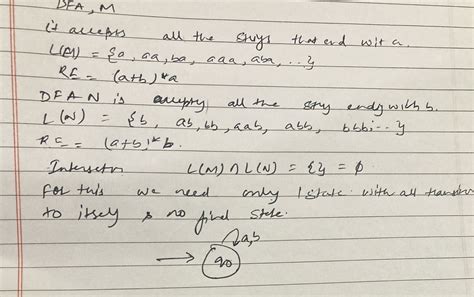 DFA, M
it accepts all the strys that end wit a.
L(M) = {a, aa, ba, aaa, aba, ...}
RE = (a+b)*a
DFA N is accepty all the stry endy with b.
L(N) = {b, ab, bb, aab, abb, bbb...}
RE = (a+b)*b.
Intersection L(M) ∩ L(N) = {} = ϕ
For this we need only 1 state with all
to itself & no final state.
a,b
q0